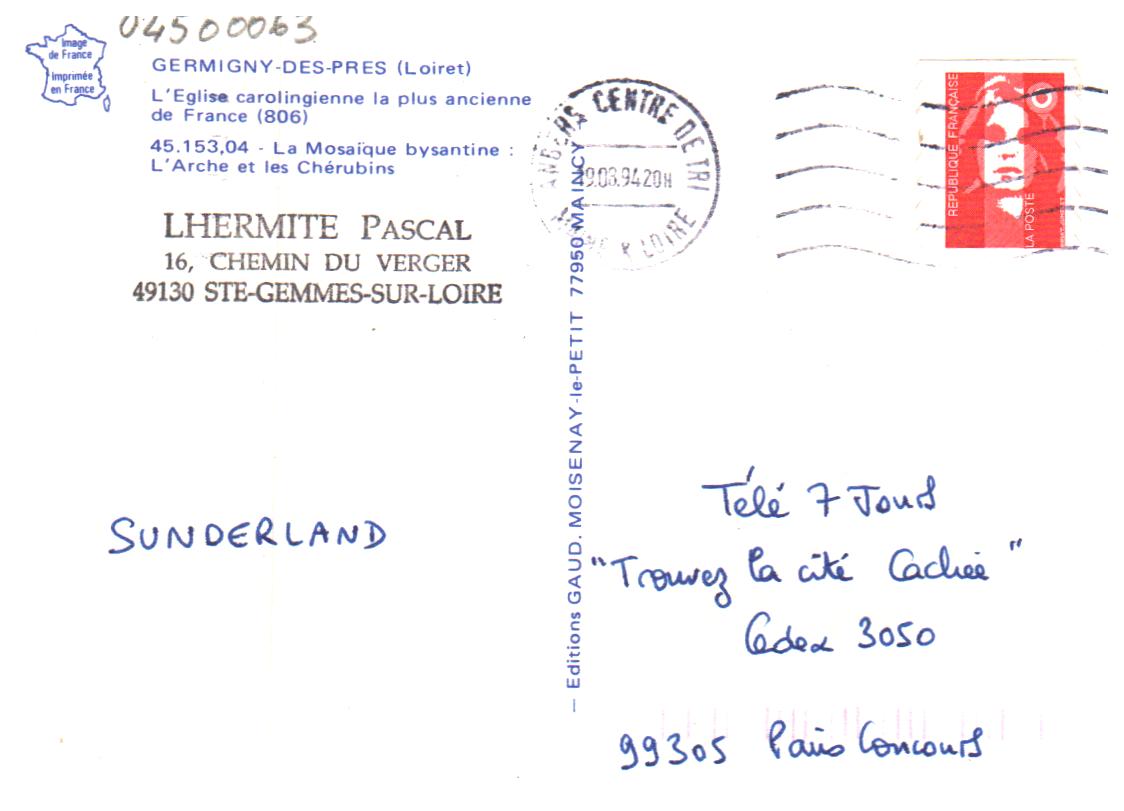 04500063
Image
de France
Imprimée
en France
GERMIGNY-DES-PRES (Loiret)
L'Eglise carolingienne la plus ancienne
de France (806)
45.153,04 - La Mosaïque bysantine :
L'Arche et les Chérubins
LHERMITE PASCAL
16, CHEMIN DU VERGER
49130 STE-GEMMES-SUR-LOIRE
SUNDERLAND
— Editions GAUD. MOISENAY-le-PETIT 77950 MAINCY
ANGERS CENTRE DE TRI
9.08.94 20H
LOIRE
REPUBLIQUE FRANÇAISE
LA POSTE
Télé 7 Jours
"Trouvez la cité Cachée"
Cedex 3050
99305 Paris Concours